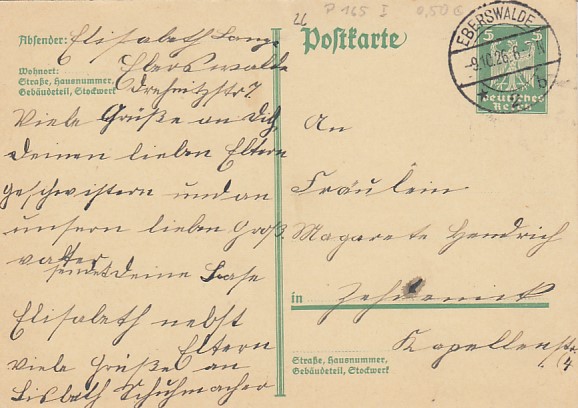 P 165 I 0,50 €
Absender: Elisabeth Lange
Wohnort: Eberswalde
Straße, Hausnummer,
Gebäudeteil, Stockwerk
Drehnitzstr 7.
Viele Grüße an Dich,
deinen lieben Eltern
geschwistern und an
unsern lieben Groß
vatter
sendet deine Base
Elisabeth nebst
Eltern
viele Grüße an
Lisbeth Schuhmacher
Postkarte
EBERSWALDE
-9.10.26.6-
b
5 5
Deutsches
Reich
An
Fräulein
Magarete Hendrich
in Zehdenick
Kapellenstr
Straße, Hausnummer,
Gebäudeteil, Stockwerk